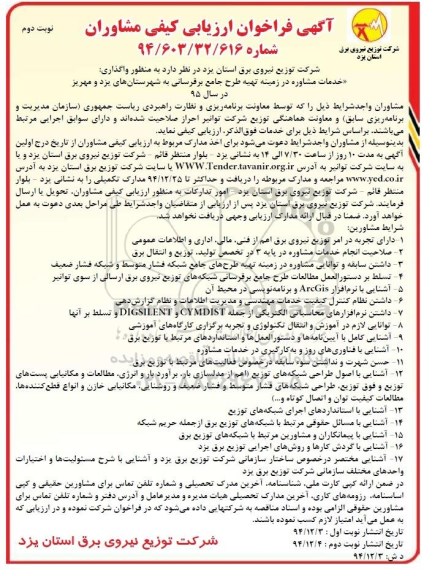 آگهی فراخوان ارزیابی کیفی مشاوران
نوبت دوم
شماره ۹۴/۶۰۳/۳۲/۶۱۶
شرکت توزیع نیروی برق
استان یزد
شرکت توزیع نیروی برق استان یزد در نظر دارد به منظور واگذاری:
«خدمات مشاوره در زمینه تهیه طرح جامع برقرسانی به شهرستان‌های یزد و مهریز
در سال ۹۵
مشاوران واجدشرایط ذیل را که توسط معاونت برنامه‌ریزی و نظارت راهبردی ریاست جمهوری (سازمان مدیریت و
برنامه‌ریزی سابق) و معاونت هماهنگی توزیع شرکت توانیر احراز صلاحیت شده‌اند و دارای سوابق اجرایی مرتبط
می‌باشند، براساس شرایط ذیل برای خدمات فوق‌الذکر، ارزیابی کیفی نماید.
بدینوسیله از مشاوران واجدشرایط دعوت می‌شود برای اخذ مدارک مربوط به ارزیابی کیفی مشاوران از تاریخ درج اولین
آگهی به مدت ۱۰ روز از ساعت ۷/۳۰ الی ۱۴ به نشانی یزد - بلوار منتظر قائم - شرکت توزیع نیروی برق استان یزد و یا
به سایت شرکت توانیر به آدرس WWW.Tender.tavanir.org.ir یا سایت شرکت توزیع برق استان یزد به آدرس
www.yed.co.ir مراجعه و مدارک مربوطه را دریافت و حداکثر تا ۹۴/۱۲/۲۵ مدارک تکمیلی را به نشانی یزد - بلوار
منتظر قائم - شرکت توزیع نیروی برق استان یزد - امور تدارکات به منظور ارزیابی کیفی مشاوران، تحویل یا ارسال
فرمایند. شرکت توزیع نیروی برق استان یزد پس از ارزیابی از متقاضیان واجدشرایط طی مراحل بعدی دعوت به عمل
خواهد آورد. ضمنا در قبال ارائه مدارک ارزیابی وجهی دریافت نخواهد شد.
شرایط مشاورین:
۱- دارای تجربه در امر توزیع نیروی برق اهم از فنی، مالی، اداری و اطلاعات عمومی
۲- صلاحیت انجام خدمات مشاوره در پایه ۳ در تخصص تولید، توزیع و انتقال برق
۳- داشتن سابقه و توانایی مشاوره در زمینه تهیه طرح‌های جامع شبکه فشار متوسط و شبکه فشار ضعیف
۴- تسلط بر دستورالعمل مطالعات طرح جامع برقرسانی شبکه‌های توزیع نیروی برق ارسالی از سوی توانیر
۵- آشنایی با نرم‌افزار ArcGis و برنامه‌نویسی در محیط آن
۶- داشتن نظام کنترل کیفیت خدمات مهندسی و مدیریت اطلاعات و نظام گزارش‌دهی
۷- داشتن نرم‌افزارهای محاسباتی الکتریکی از جمله CYMDIST و DIGSILENT و تسلط بر آنها
۸- توانایی لازم در آموزش و انتقال تکنولوژی و تجربه برگزاری کارگاه‌های آموزشی
۹- آشنایی کامل با آیین‌نامه‌ها و دستورالعمل‌ها و استانداردهای مرتبط با توزیع برق
۱۰- آشنایی با فناوری‌های روز و به‌کارگیری در خدمات مشاوره
۱۱- حسن شهرت و نداشتن سوء سابقه درخصوص فعالیت‌های مرتبط با توزیع برق
۱۲- آشنایی با اصول طراحی شبکه‌های توزیع (اهم از مدلسازی بار، برآورد بار و انرژی، مطالعات و مکانیابی پست‌های
توزیع و فوق توزیع، طراحی شبکه‌های فشار متوسط و فشار ضعیف و روشنایی، مکانیابی خازن و انواع قطع‌کننده‌ها،
مطالعات کیفیت توان و اتصال کوتاه و...)
۱۳- آشنایی با استانداردهای اجرای شبکه‌های توزیع
۱۴- آشنایی با مسائل حقوقی مرتبط با شبکه‌های توزیع برق ازجمله حریم شبکه
۱۵- آشنایی با پیمانکاران و مشاورین مرتبط با شبکه‌های توزیع برق
۱۶- آشنایی با گردش کارها و روش‌های اجرایی توزیع برق یزد
۱۷- آشنایی مختصر درخصوص ساختار سازمانی شرکت توزیع برق یزد و آشنایی با شرح مسئولیت‌ها و اختیارات
واحدهای مختلف سازمانی شرکت توزیع برق یزد
در ضمن ارائه کپی کارت ملی، شناسنامه، آخرین مدرک تحصیلی و شماره تلفن تماس برای مشاورین حقیقی و کپی
اساسنامه، رزومه‌های کاری، آخرین مدارک تحصیلی هیات مدیره و مدیرعامل و آدرس دفتر و شماره تلفن تماس برای
مشاورین حقوقی الزامی بوده و اسناد مناقصه به شرکتهایی داده می‌شود که در فراخوان شرکت نموده و در ارزیابی که
به عمل می‌آید امتیاز لازم کسب نموده باشند.
تاریخ انتشار نوبت اول : ۹۴/۱۲/۳
تاریخ انتشار نوبت دوم : ۹۴/۱۲/۴
د ش: ۹۴/۱۲/۳
شرکت توزیع نیروی برق استان یزد